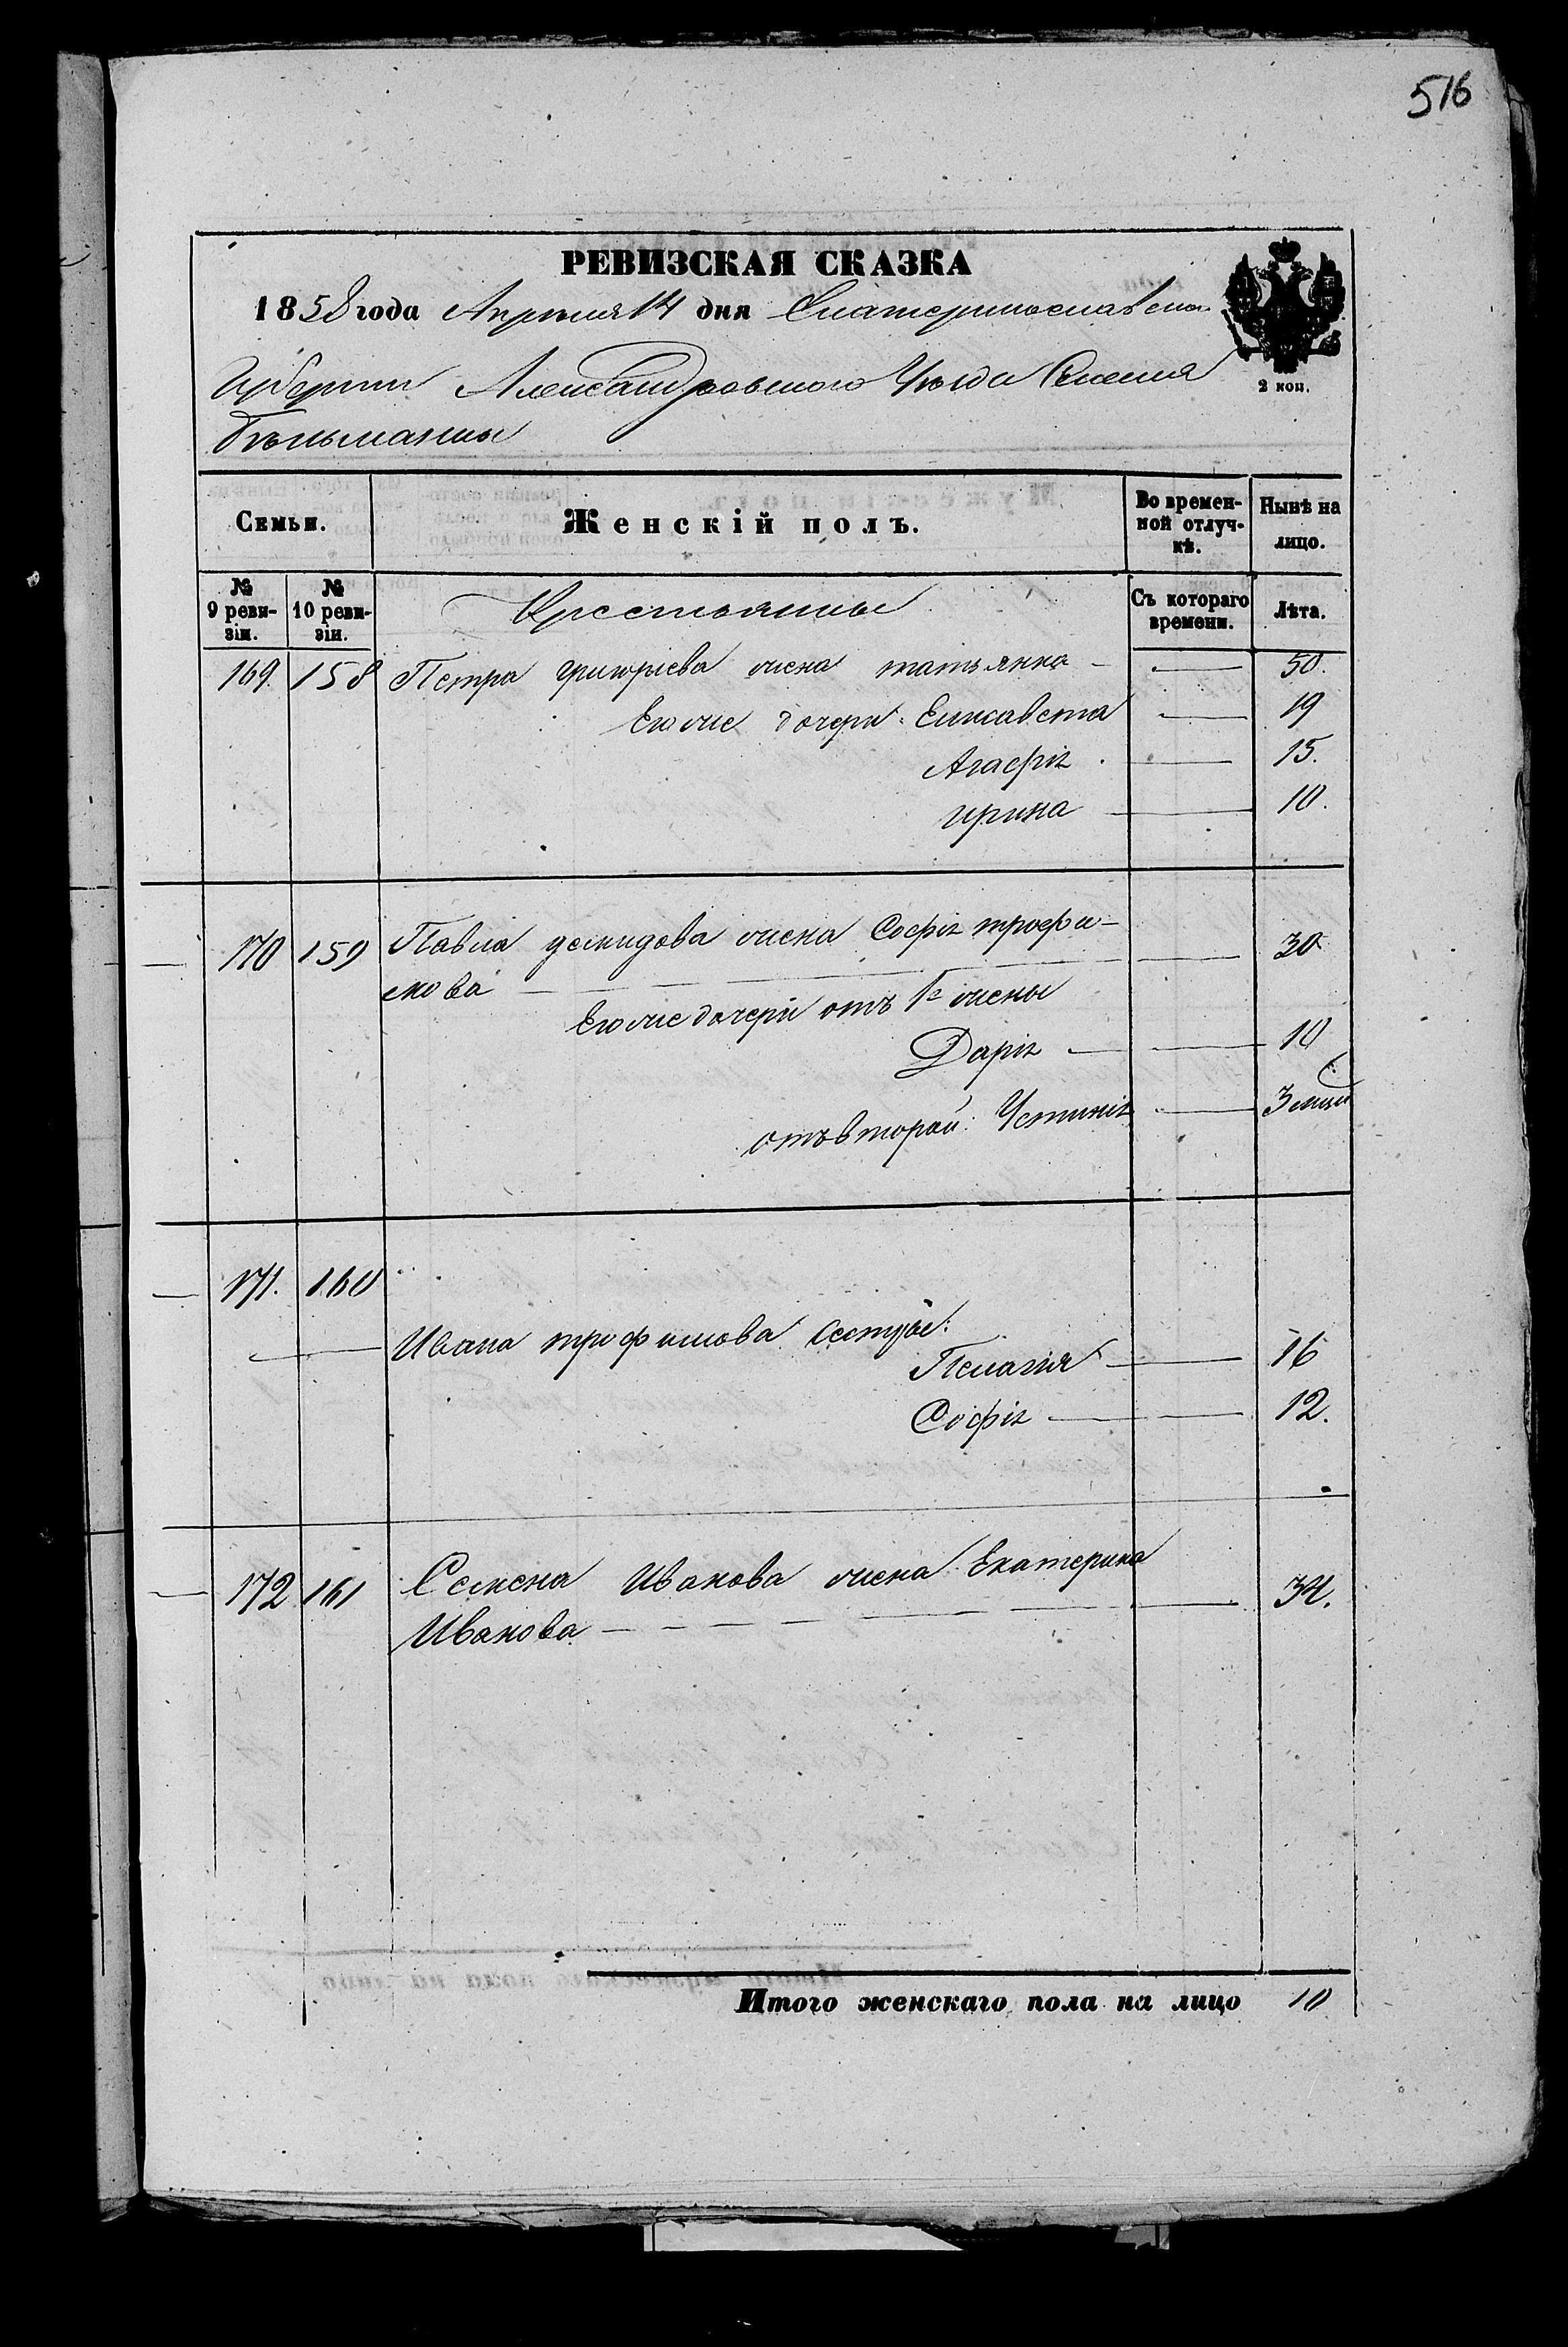 516
РЕВИЗСКАЯ СКАЗКА
1858 года Апрѣля 14 дня Екатеринославской
Губернии Александровского Уѣзда Селенія
Бѣльманки
2 коп.
Семьи. Женскій полъ. Во времен-ной отлуч-кѣ. Нынѣ на лицо.
№ 9 реви-зіи. № 10 реви-зіи. Крестьянины Съ котораго времени. Лѣта.
169. 158 Петра григорієва жена татьянка — 50.
Его же дочери: Елисавета — 19
Агафія — 15.
ирина — 10.
170 159 Павла демидова жена Софія трофи-
мова — 30
Его же дочери отъ 1й жены
Дарія — 10
отъ второй: Устинія — 3 мцы
171. 160
Ивана трофимова сестры:
Пелагія — 16
Софія — 12.
172 161 Семена Иванова жена Екатерина
Иванова — 34.
Итого женскаго пола на лицо 10